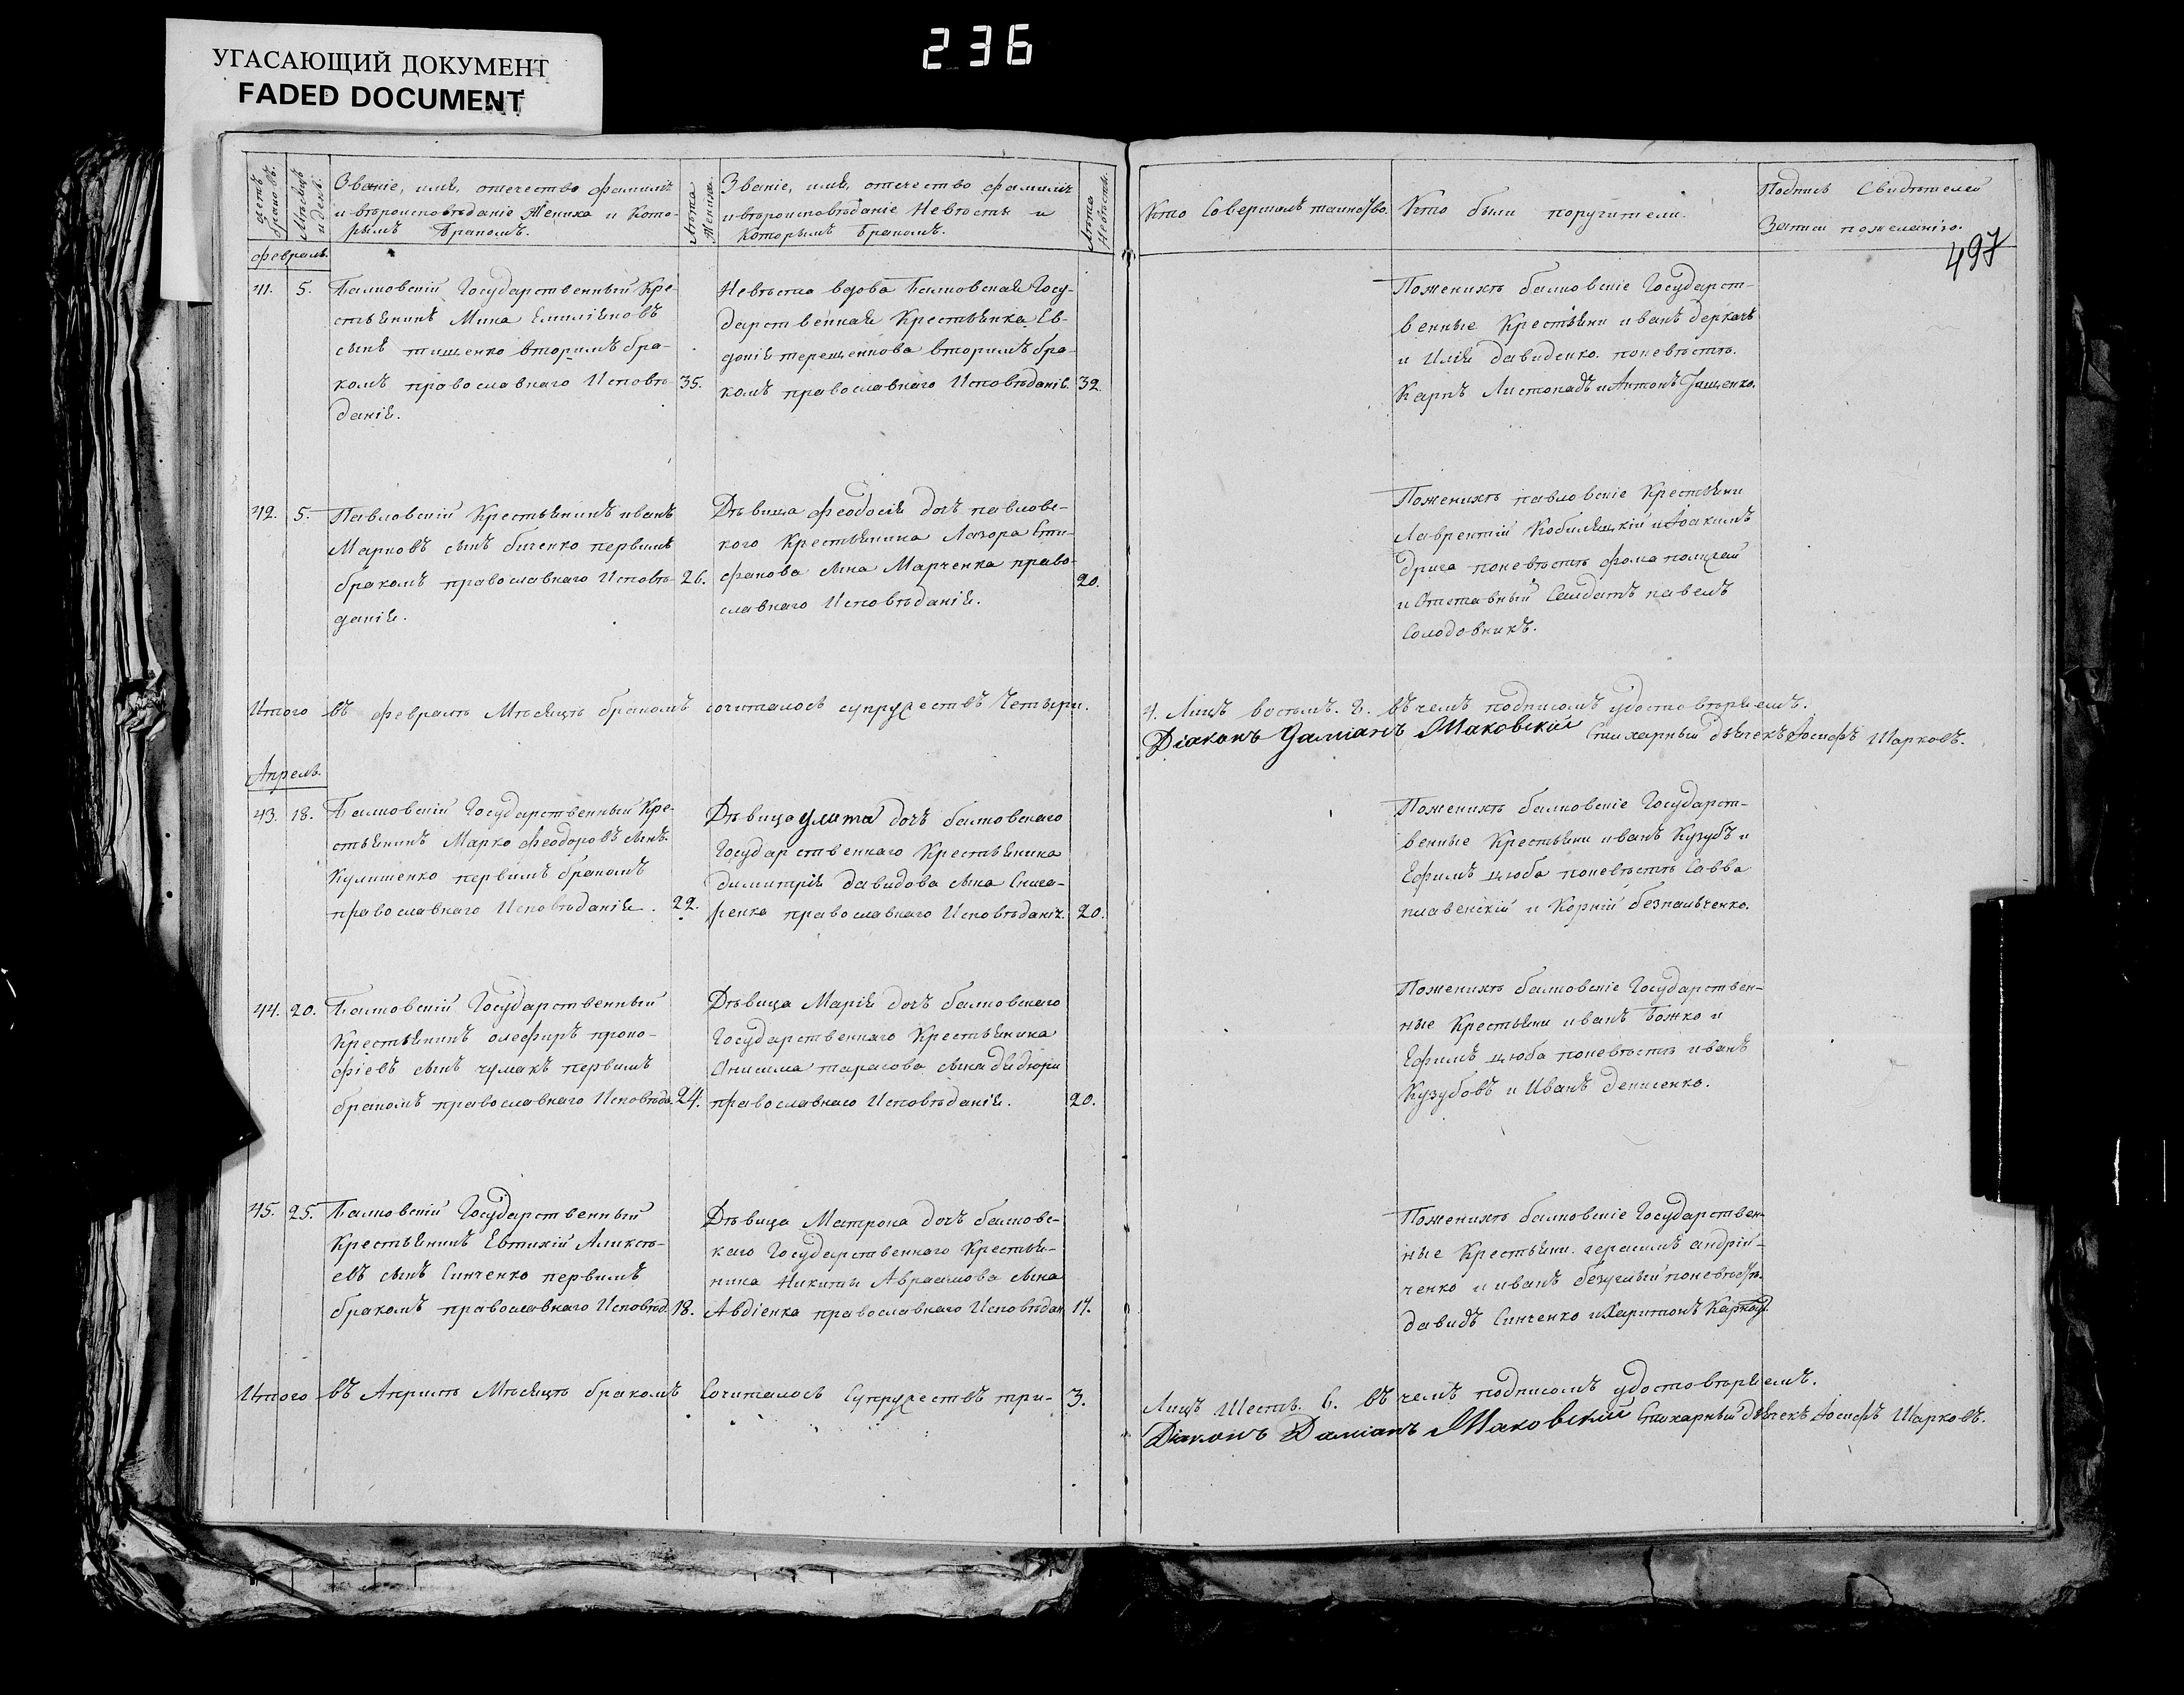 УГАСАЮЩИЙ ДОКУМЕНТ
FADED DOCUMENT
236
497
Счетъ браковъ.
Мѣсяцъ и день.
Званіе, имя, отчество фамилія
и вѣроисповѣданіе Жениха и Кото-
рымъ бракомъ.
Лѣта Жениха.
Званіе, имя, отчество фамилія
и вѣроисповѣданіе Невѣсты и
которымъ бракомъ.
Лѣта Невѣсты.
Кто Совершалъ таинство.
Кто были поручители.
Подпись Свидѣтелей
Записи пожеланію.
февраль.
41. 5. Балковскій Государственный Кре-
стьянинъ Мина Емиліановъ
сынъ тищенко вторимъ бра-
комъ православнаго Исповѣ- 35.
данія.
Невѣста вдова Балковская Госу-
дарственная Крестьянка Ев-
докія терещенкова вторимъ бра-
комъ православнаго Исповѣданія. 32
Поженихѣ балковскіе Государст-
венные Крестьяни иванъ деркачъ
и Илія давиденко. поневѣстѣ.
Карпъ Листопадъ и Антонъ Гященко.
42. 5. Павловскій Крестьянинъ иванъ
Марковъ сынъ биченко первимъ
бракомъ православнаго Исповѣ- 26.
данія.
Дѣвица феодосія дочъ павловс-
кого Крестьянина Лазора Сти-
фанова сына Марченка право-
славнаго Исповѣданія. 20.
Поженихѣ павловскіе Крестьяни
Лаврентій Кобиляцкій и Іоакимъ
дрига поневѣстѣ фома полицай
и Отставный Салдатъ павелъ
Солодовникъ.
Итого въ февралѣ Мѣсяцѣ бракомъ сочиталось супружествъ Четыри.
4. Лицъ восемъ. 8. въ чемъ подписомъ удостовѣряемъ.
Діаконъ Даміанъ Маковскій Стихарный дьячекъ Іосифъ Шарковъ.
Апрель.
43. 18. Балковскій Государственный Кре-
стьянинъ Марко феодоровъ сынъ
Кулишенко первимъ бракомъ
православнаго Исповѣданія. 22.
Дѣвица улита дочъ балковскаго
Государственнаго Крестьянина
димитрія давидова сына Снига-
ренка православнаго Исповѣданія. 20.
Поженихѣ балковскіе Государст-
венные Крестьяни иванъ Кузубъ и
Ефимъ цюба поневѣстѣ Савва
плавенскій и Корній безпальченко.
44. 20. Балковскій Государственный
Крестьянинъ олефиръ проко-
фіевъ сынъ чумакъ первимъ
бракомъ православнаго Исповѣда. 24.
Дѣвица Марія дочъ балковскаго
Государственнаго Крестьянина
Онисима тарасова сына дидюри
православнаго Исповѣданія. 20.
Поженихѣ балковскіе Государствен-
ные Крестьяни иванъ Божко и
Ефимъ цюба поневѣстѣ иванъ
Кузубовъ и Иванъ денисенко.
45. 25. Балковскій Государственный
Крестьянинъ Евтихій Аликсѣ-
евъ сынъ Синченко первимъ
бракомъ православнаго Исповѣд. 18.
Дѣвица Матрона дочъ балковс-
каго Государственнаго Крестья-
нина Никити Авраамова сына
Авдіенка православнаго Исповѣдан. 17.
Поженихѣ балковскіе Государствен-
ные Крестьяни. герасимъ андрій-
ченко и иванъ безуглый поневѣстѣ.
давидъ Синченко и Харитонъ
Итого въ Априлѣ Мѣсяцѣ бракомъ Сочиталось Супружествъ три- 3.
Лицъ Шесть. 6. въ чемъ подписомъ удостовѣряемъ.
Діаконъ Даміанъ Маковскій Стихарный дьячекъ Іосифъ Шарковъ.